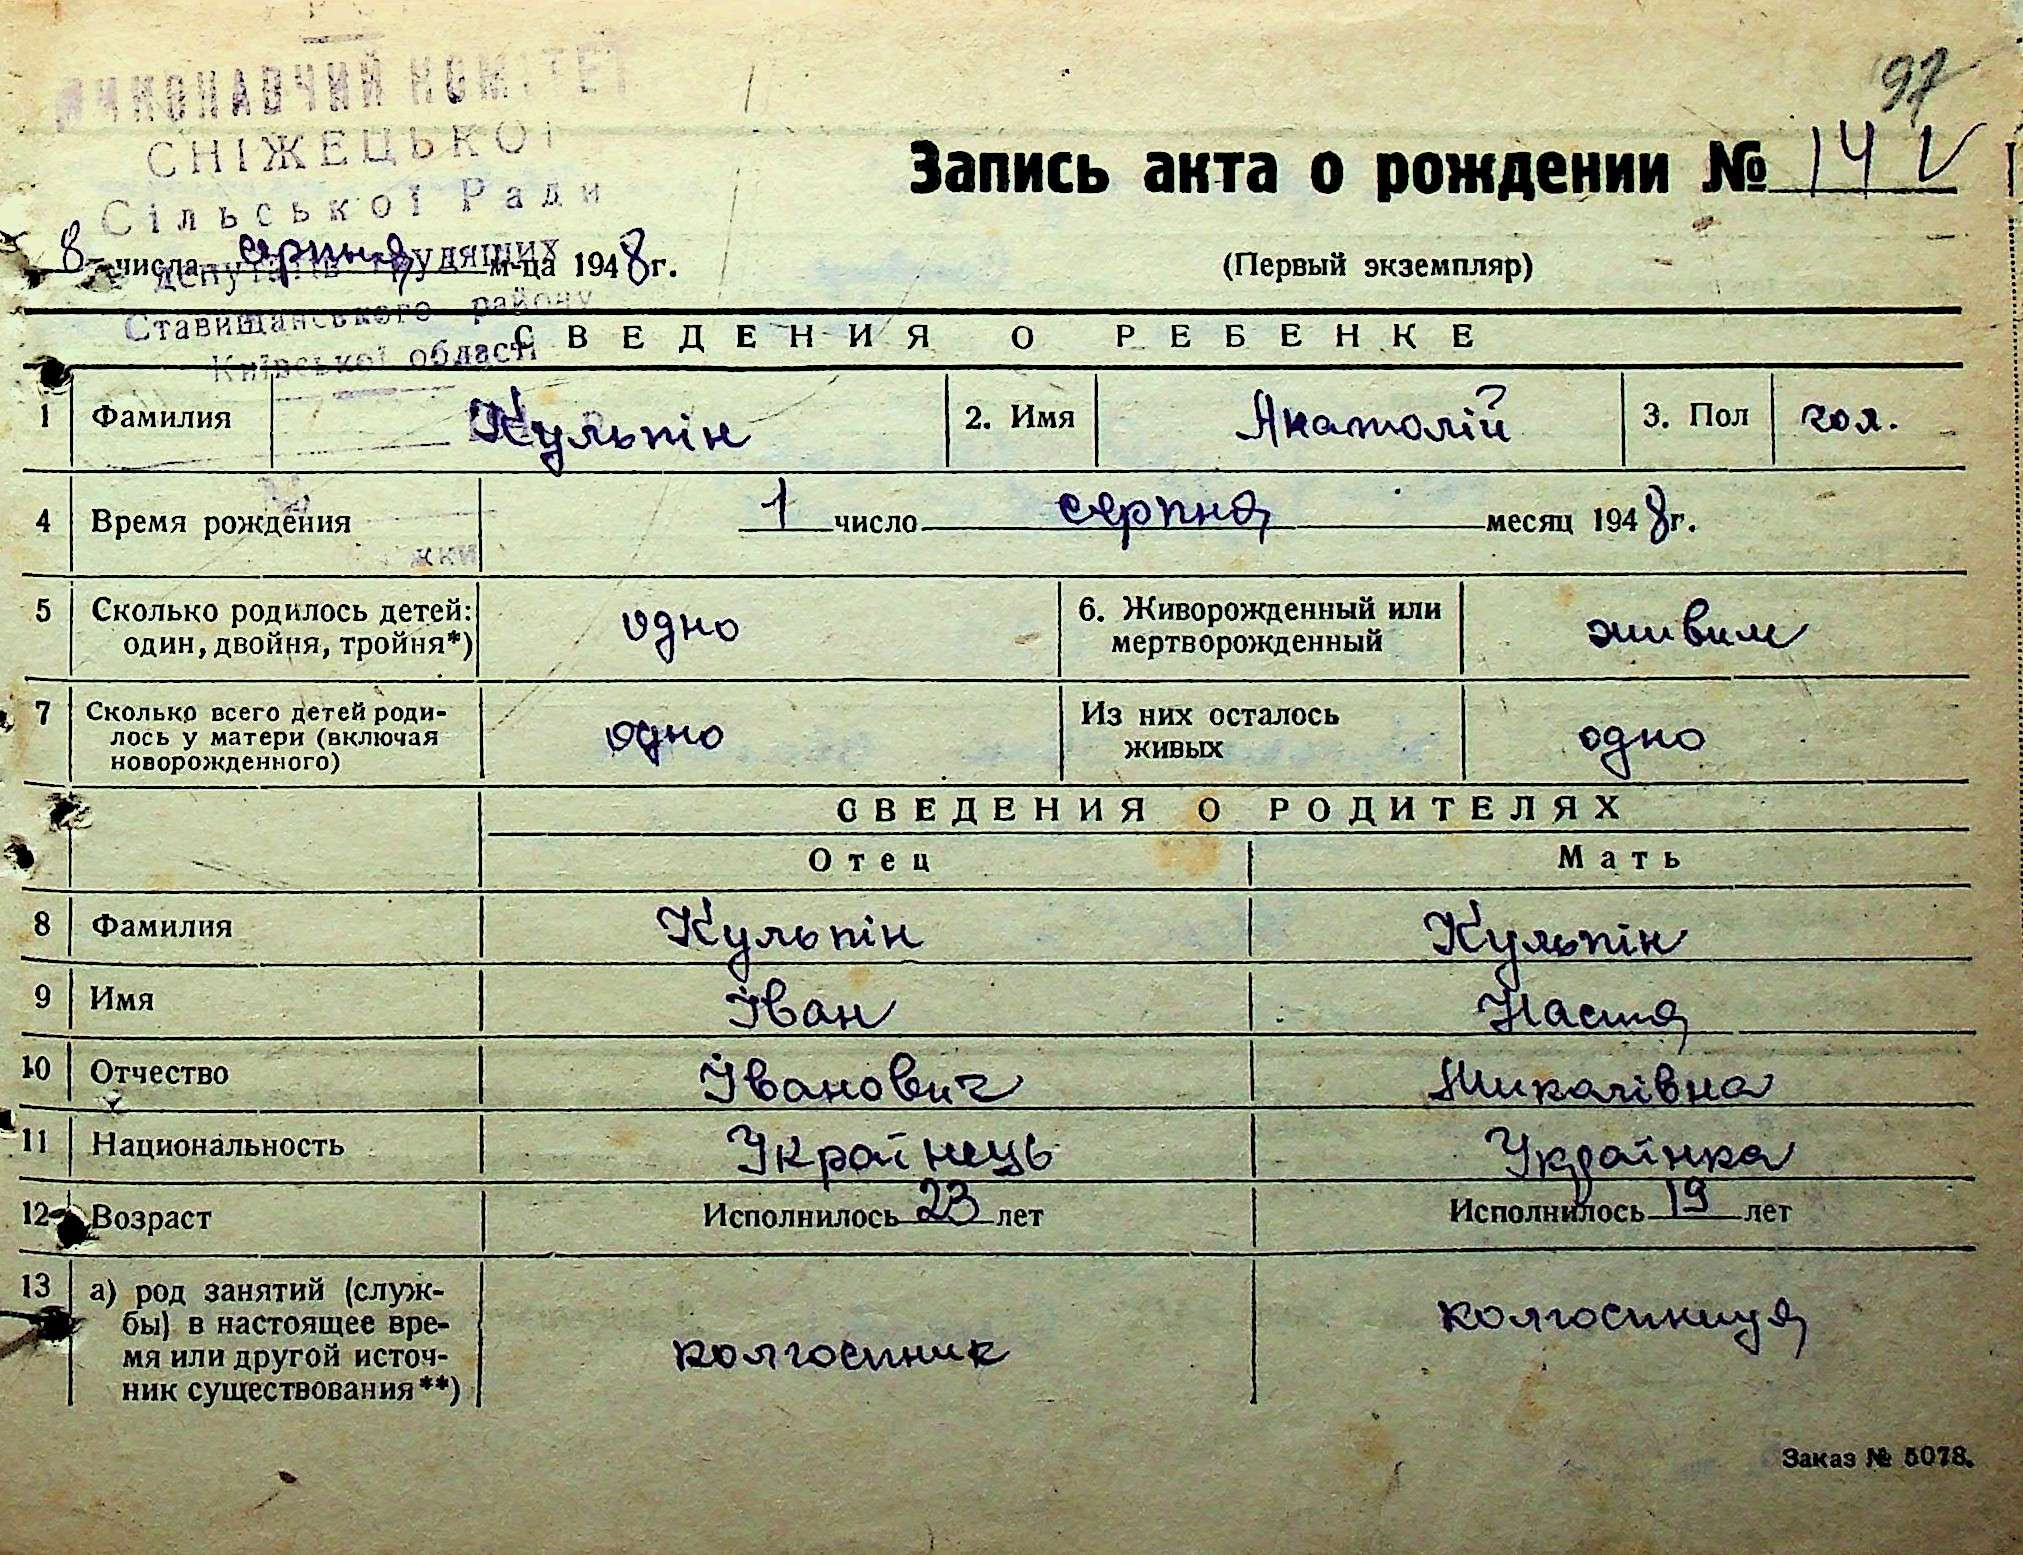 97
ВИКОНАВЧИЙ КОМІТЕТ
СНІЖЕЦЬКОЇ
Сільської Ради
депутатів трудящих
Ставищанського району
Київської області
Запись акта о рождении № 14
8 числа серпня м-ца 1948 г.
(Первый экземпляр)
СВЕДЕНИЯ О РЕБЕНКЕ
1 Фамилия Кульпін 2. Имя Анатолій 3. Пол чол.
4 Время рождения 1 число серпня месяц 1948 г.
5 Сколько родилось детей: один, двойня, тройня*) одно 6. Живорожденный или мертворожденный живим
7 Сколько всего детей родилось у матери (включая новорожденного) одно Из них осталось живых одно
СВЕДЕНИЯ О РОДИТЕЛЯХ
Отец Мать
8 Фамилия Кульпін Кульпін
9 Имя Іван Настя
10 Отчество Іванович Миколівна
11 Национальность Українець Українка
12 Возраст Исполнилось 23 лет Исполнилось 19 лет
13 а) род занятий (службы) в настоящее время или другой источник существования**) колгоспник колгоспниця
Заказ № 5078.